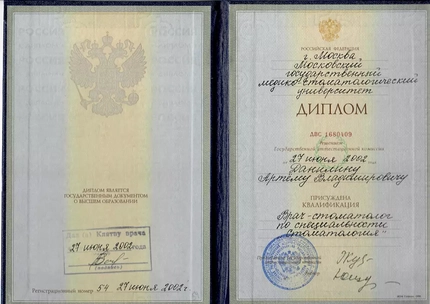 ДИПЛОМ ЯВЛЯЕТСЯ
ГОСУДАРСТВЕННЫМ ДОКУМЕНТОМ
О ВЫСШЕМ ОБРАЗОВАНИИ
Клятву врача
27 июня 2002 года
Регистрационный номер 54 27 июня 2002г
РОССИЙСКАЯ ФЕДЕРАЦИЯ
г. Москва
Московский
государственный
медико-стоматологический
университет
ДИПЛОМ
ДВС 1680409
Решением
Государственной аттестационной комиссии
27 июня 2002
Данилину
Артёму Владимировичу
ПРИСУЖДЕНА
КВАЛИФИКАЦИЯ
Врач-стоматолог
по специальности
"стоматология"